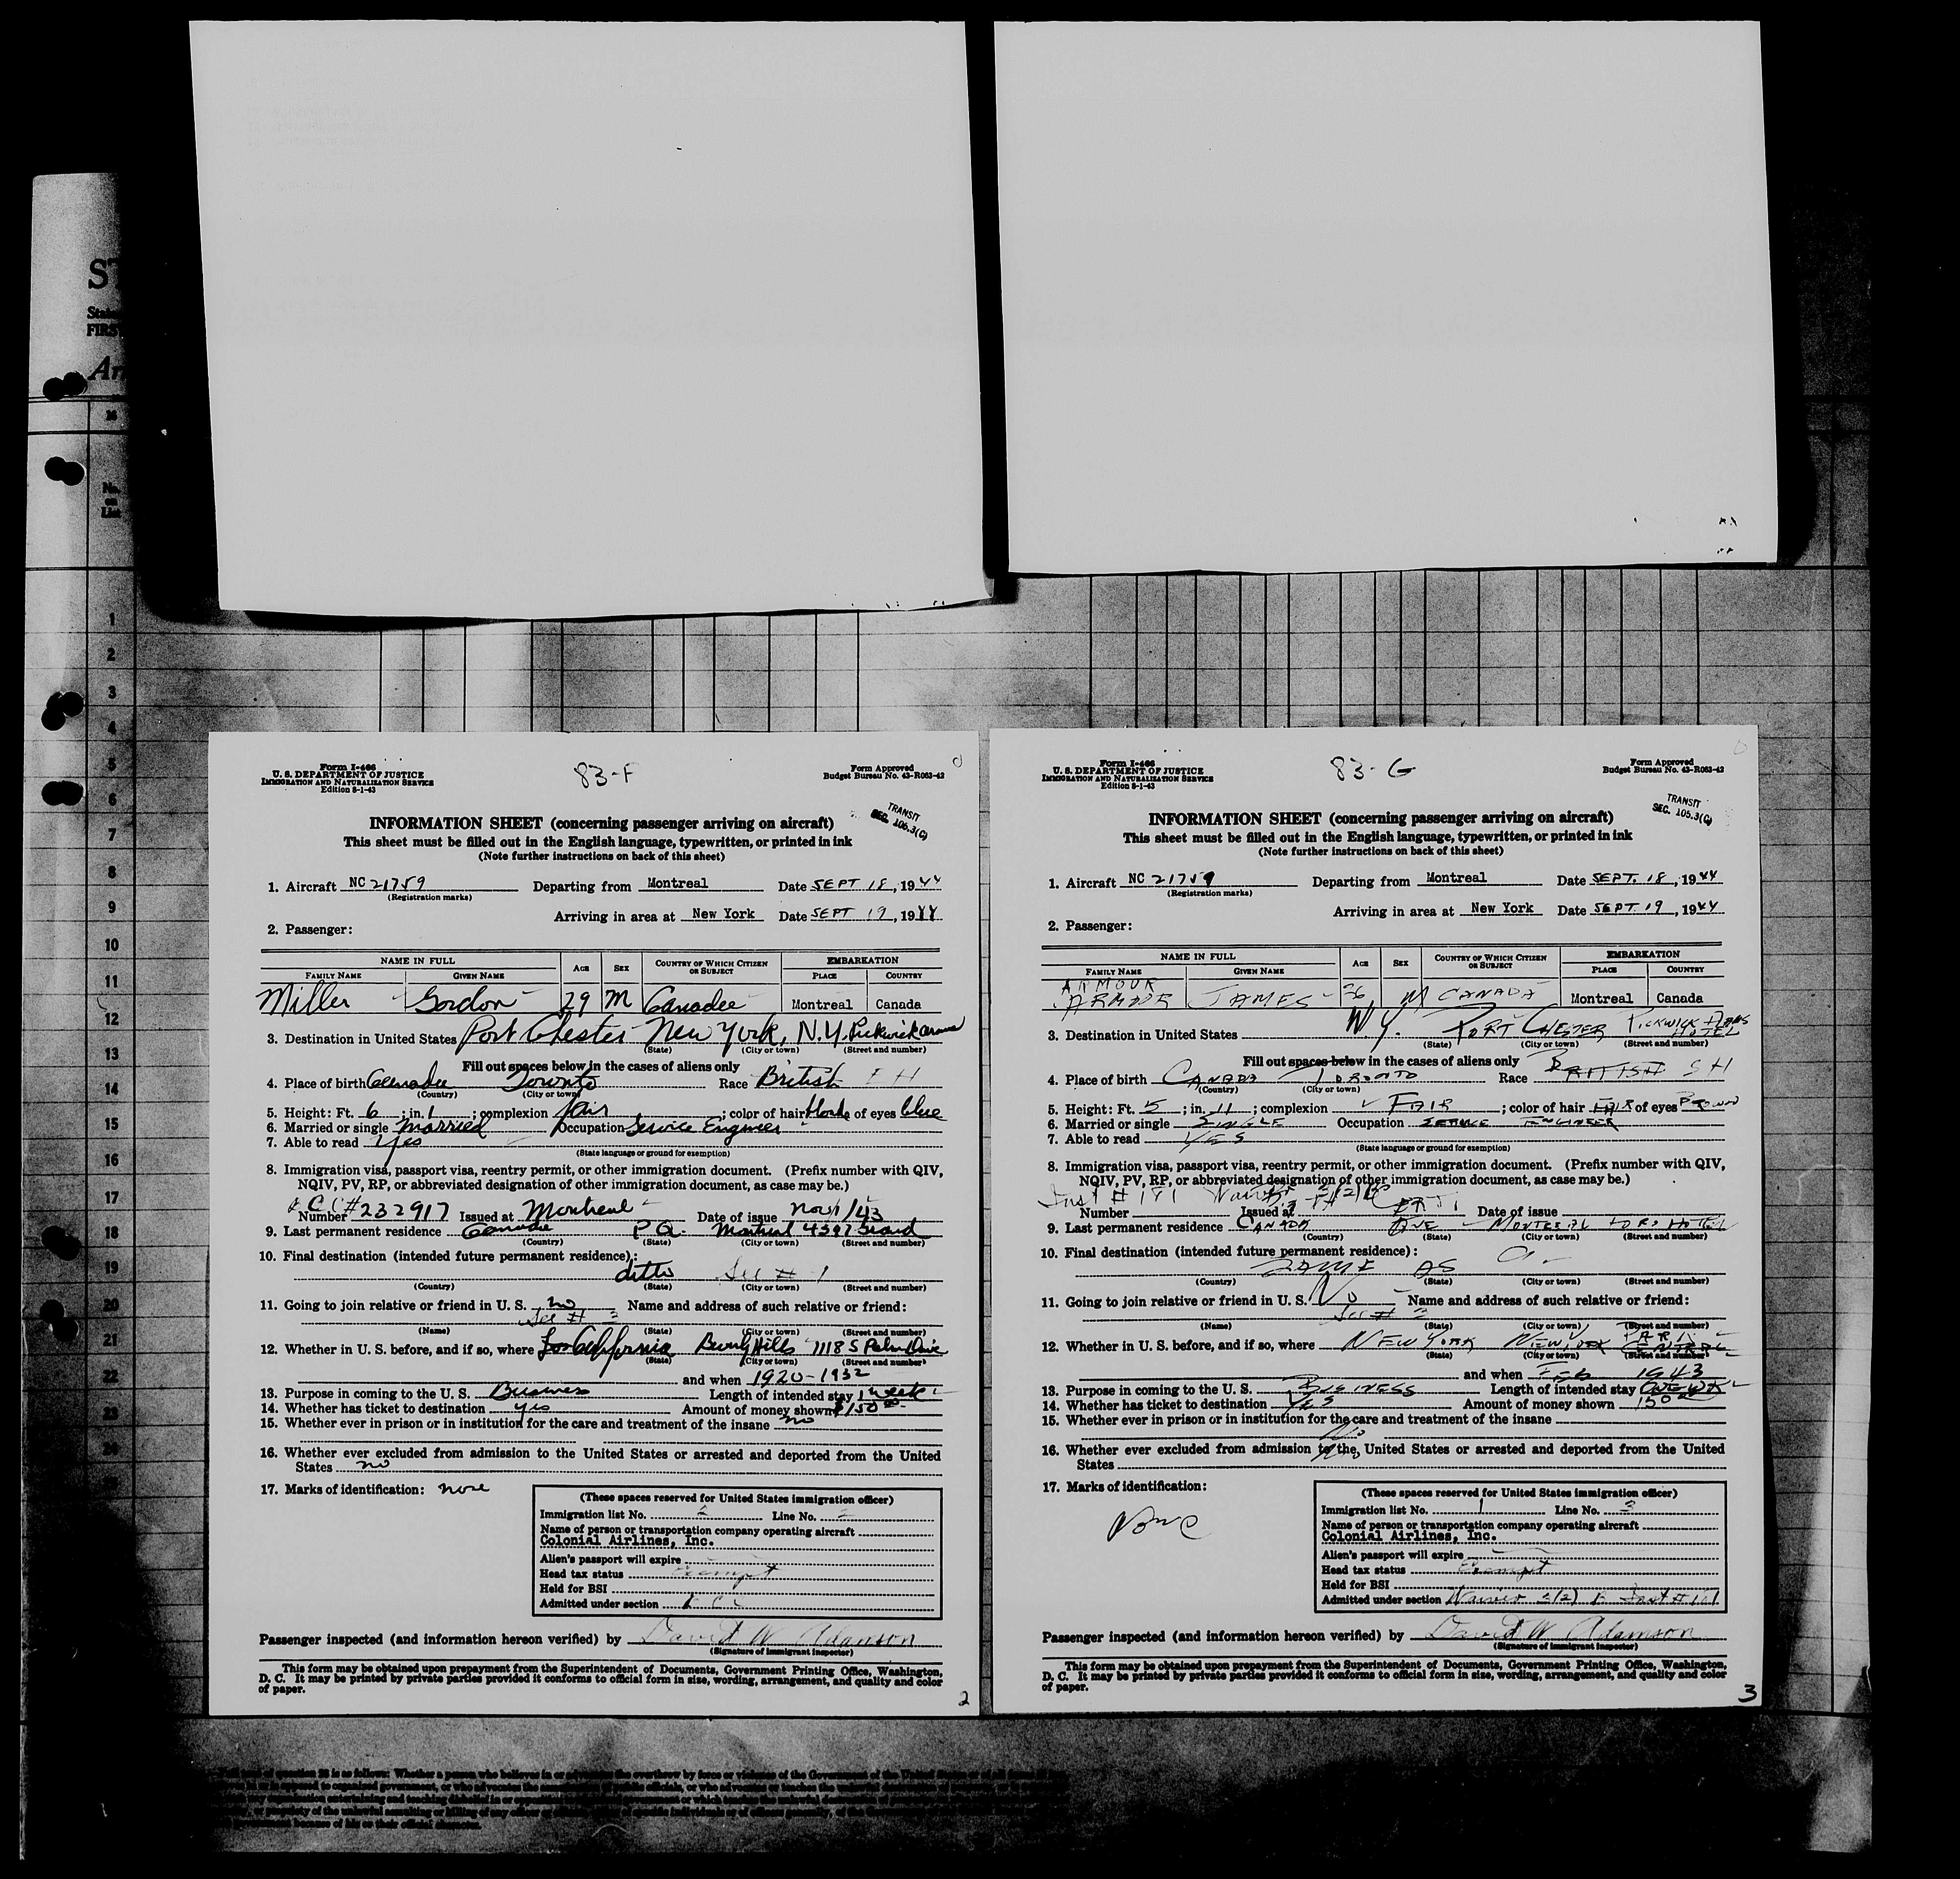 Form I-466
U. S. DEPARTMENT OF JUSTICE
IMMIGRATION AND NATURALIZATION SERVICE
Edition 8-1-43
83-F
Form Approved
Budget Bureau No. 43-R063-42
TRANSIT
SEC. 105.3(C)
INFORMATION SHEET (concerning passenger arriving on aircraft)
This sheet must be filled out in the English language, typewritten, or printed in ink
(Note further instructions on back of this sheet)
1. Aircraft NC 21759 Departing from Montreal Date SEPT 18, 1944
(Registration marks)
Arriving in area at New York Date SEPT 19, 1944
2. Passenger:
NAME IN FULL AGE SEX COUNTRY OF WHICH CITIZEN OR SUBJECT EMBARKATION
FAMILY NAME GIVEN NAME PLACE COUNTRY
Miller Gordon 29 M Canadee Montreal Canada
3. Destination in United States Port Chester New York, N.Y. Pickwick Arms
(State) (City or town) (Street and number)
Fill out spaces below in the cases of aliens only
4. Place of birth Canadee Toronto Race British
(Country) (City or town)
5. Height: Ft. 6; in. 1; complexion fair; color of hair blonde of eyes blue
6. Married or single married Occupation Service Engineer
7. Able to read Yes
(State language or ground for exemption)
8. Immigration visa, passport visa, reentry permit, or other immigration document. (Prefix number with QIV,
NQIV, PV, RP, or abbreviated designation of other immigration document, as case may be.)
Number #232917 Issued at Montreal Date of issue Nov 1/43
9. Last permanent residence Canadee P.Q. Montreal 4397
(Country) (State) (City or town) (Street and number)
10. Final destination (intended future permanent residence):
ditto
(Country) (State) (City or town) (Street and number)
11. Going to join relative or friend in U. S. no Name and address of such relative or friend:
(Name) (State) (City or town) (Street and number)
12. Whether in U. S. before, and if so, where California Beverly Hills 1118 S Palm Drive
(State) (City or town) (Street and number)
and when 1920-1932
13. Purpose in coming to the U. S. Business Length of intended stay 1 week
14. Whether has ticket to destination yes Amount of money shown $150.00
15. Whether ever in prison or in institution for the care and treatment of the insane no
16. Whether ever excluded from admission to the United States or arrested and deported from the United
States no
17. Marks of identification: none
(These spaces reserved for United States immigration officer)
Immigration list No. Line No.
Name of person or transportation company operating aircraft
Colonial Airlines, Inc.
Alien's passport will expire
Head tax status Exempt
Held for BSI
Admitted under section
Passenger inspected (and information hereon verified) by David W Adamson
(Signature of immigrant inspector)
This form may be obtained upon prepayment from the Superintendent of Documents, Government Printing Office, Washington,
D. C. It may be printed by private parties provided it conforms to official form in size, wording, arrangement, and quality and color
of paper.
2
Form I-466
U. S. DEPARTMENT OF JUSTICE
IMMIGRATION AND NATURALIZATION SERVICE
Edition 8-1-43
83-G
Form Approved
Budget Bureau No. 43-R063-42
TRANSIT
SEC. 105.3(C)
INFORMATION SHEET (concerning passenger arriving on aircraft)
This sheet must be filled out in the English language, typewritten, or printed in ink
(Note further instructions on back of this sheet)
1. Aircraft NC 21759 Departing from Montreal Date SEPT. 18, 1944
(Registration marks)
Arriving in area at New York Date SEPT. 19, 1944
2. Passenger:
NAME IN FULL AGE SEX COUNTRY OF WHICH CITIZEN OR SUBJECT EMBARKATION
FAMILY NAME GIVEN NAME PLACE COUNTRY
ARMOUR
ARMOUR JAMES 36 M CANADA Montreal Canada
3. Destination in United States N.Y. PORT CHESTER PICKWICK ARMS HOTEL
(State) (City or town) (Street and number)
Fill out spaces below in the cases of aliens only
4. Place of birth CANADA TORONTO Race BRITISH SH
(Country) (City or town)
5. Height: Ft. 5; in. 11; complexion FAIR; color of hair FAIR of eyes BROWN
6. Married or single SINGLE Occupation SERVICE ENGINEER
7. Able to read YES
(State language or ground for exemption)
8. Immigration visa, passport visa, reentry permit, or other immigration document. (Prefix number with QIV,
NQIV, PV, RP, or abbreviated designation of other immigration document, as case may be.)
Inst # 181 Waiver
Number Issued at Date of issue
9. Last permanent residence CANADA MONTREAL HOTEL
(Country) (State) (City or town) (Street and number)
10. Final destination (intended future permanent residence):
SAME AS 9.
(Country) (State) (City or town) (Street and number)
11. Going to join relative or friend in U. S. No Name and address of such relative or friend:
(Name) (State) (City or town) (Street and number)
12. Whether in U. S. before, and if so, where NEW YORK NEW YORK PARK CENTRAL
(State) (City or town) (Street and number)
and when FEB 1943
13. Purpose in coming to the U. S. BUSINESS Length of intended stay ONE WK
14. Whether has ticket to destination YES Amount of money shown 150.00
15. Whether ever in prison or in institution for the care and treatment of the insane
No
16. Whether ever excluded from admission to the United States or arrested and deported from the United
States No
17. Marks of identification:
None
(These spaces reserved for United States immigration officer)
Immigration list No. 1 Line No. 3
Name of person or transportation company operating aircraft
Colonial Airlines, Inc.
Alien's passport will expire
Head tax status Exempt
Held for BSI
Admitted under section Waiver 3(2)
Passenger inspected (and information hereon verified) by David W Adamson
(Signature of immigrant inspector)
This form may be obtained upon prepayment from the Superintendent of Documents, Government Printing Office, Washington,
D. C. It may be printed by private parties provided it conforms to official form in size, wording, arrangement, and quality and color
of paper.
3